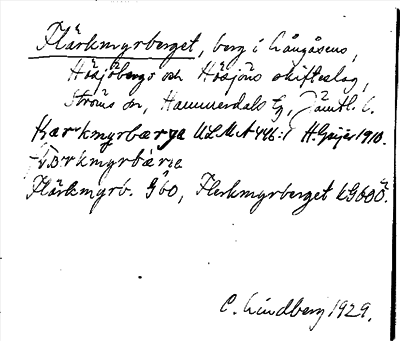 Flärkmyrberget, berg i Långåsens,
Hösjöbergs och Hösjöns skifteslag,
Ströms sn, Hammerdals tg, Jämtl. l.
Karkmyrbærȷa ULMA 446:1 H. Geijer 1910.
Flärkmyrb. Gbö, Flerkmyrberget kGbOÖ.
C. Lindberg 1929.